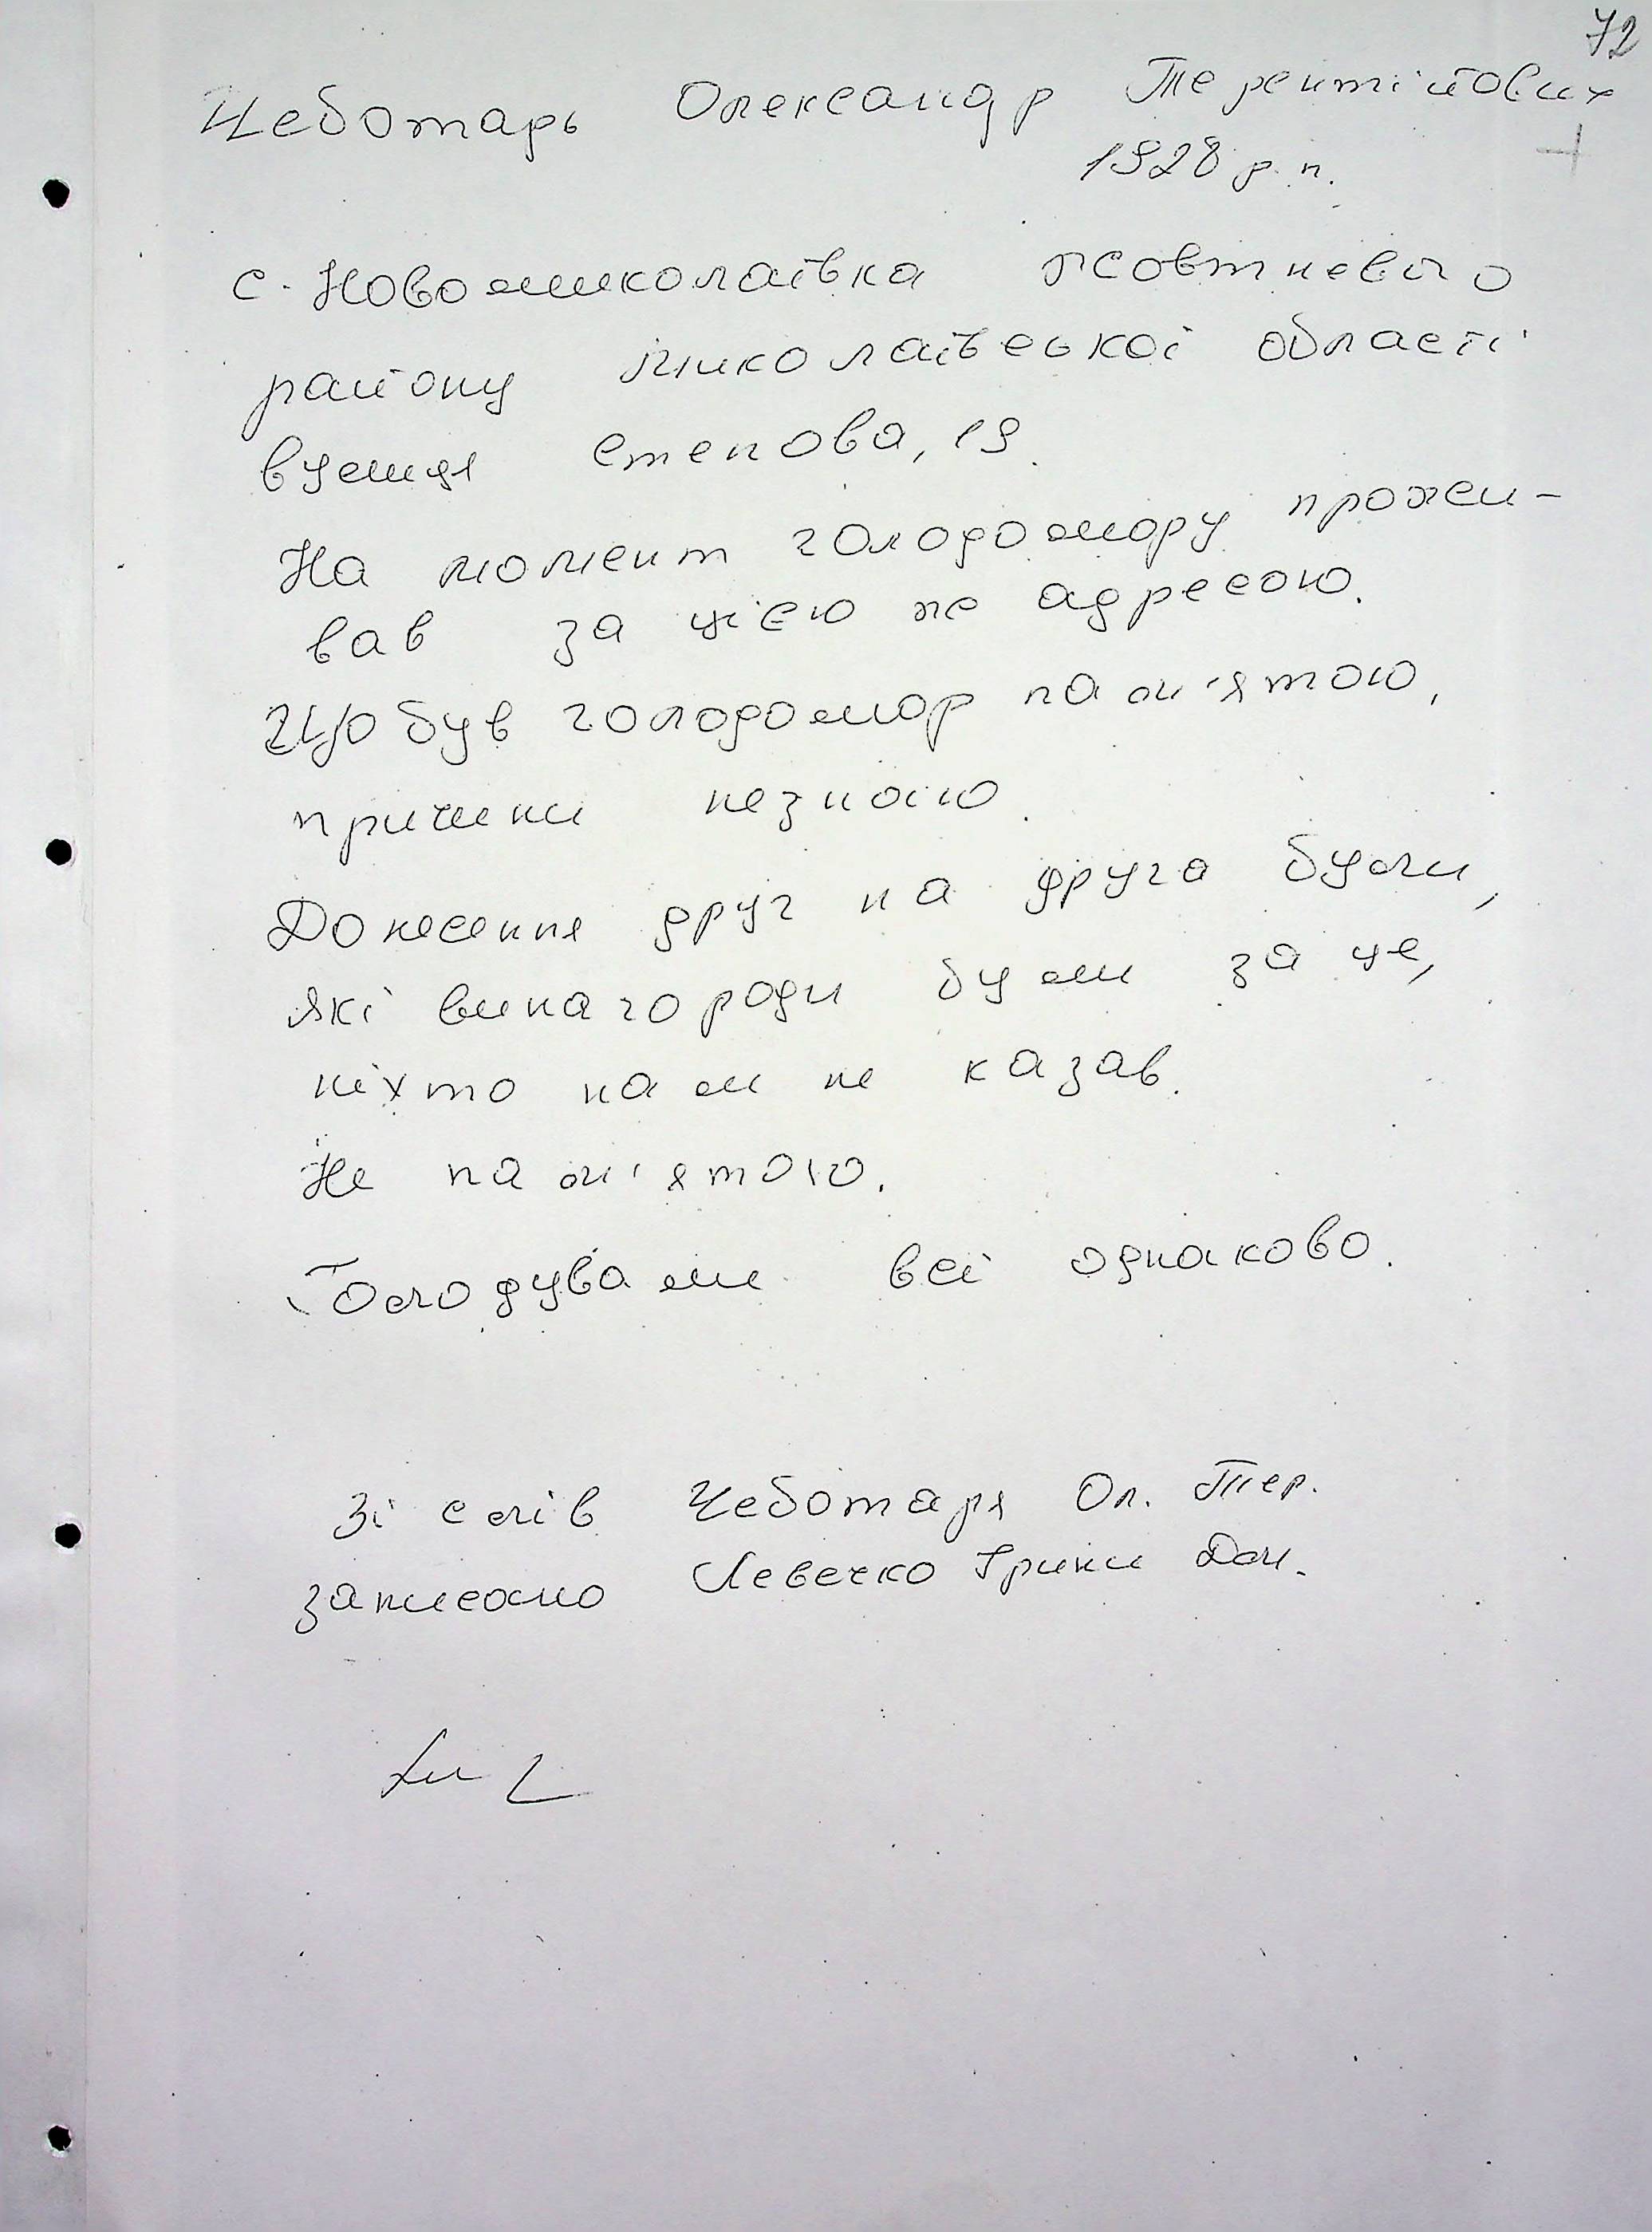 72
Чеботарь Олександр Терентійович
1928 р.п.
с. Новомиколаївка жовтневого
району Миколаївської області
вулиця степова, 19.
На момент голодомору прожи-
вав за цією же адресою.
Що був голодомор пам'ятою,
причини незнаю.
Донесення друг на друга були,
які винагороди були за це,
ніхто нам не казав.
Не пам'ятою.
Голодували всі однаково.
Зі слів Чеботаря Ол. Тер.
записано Левечко Ірини Дом.